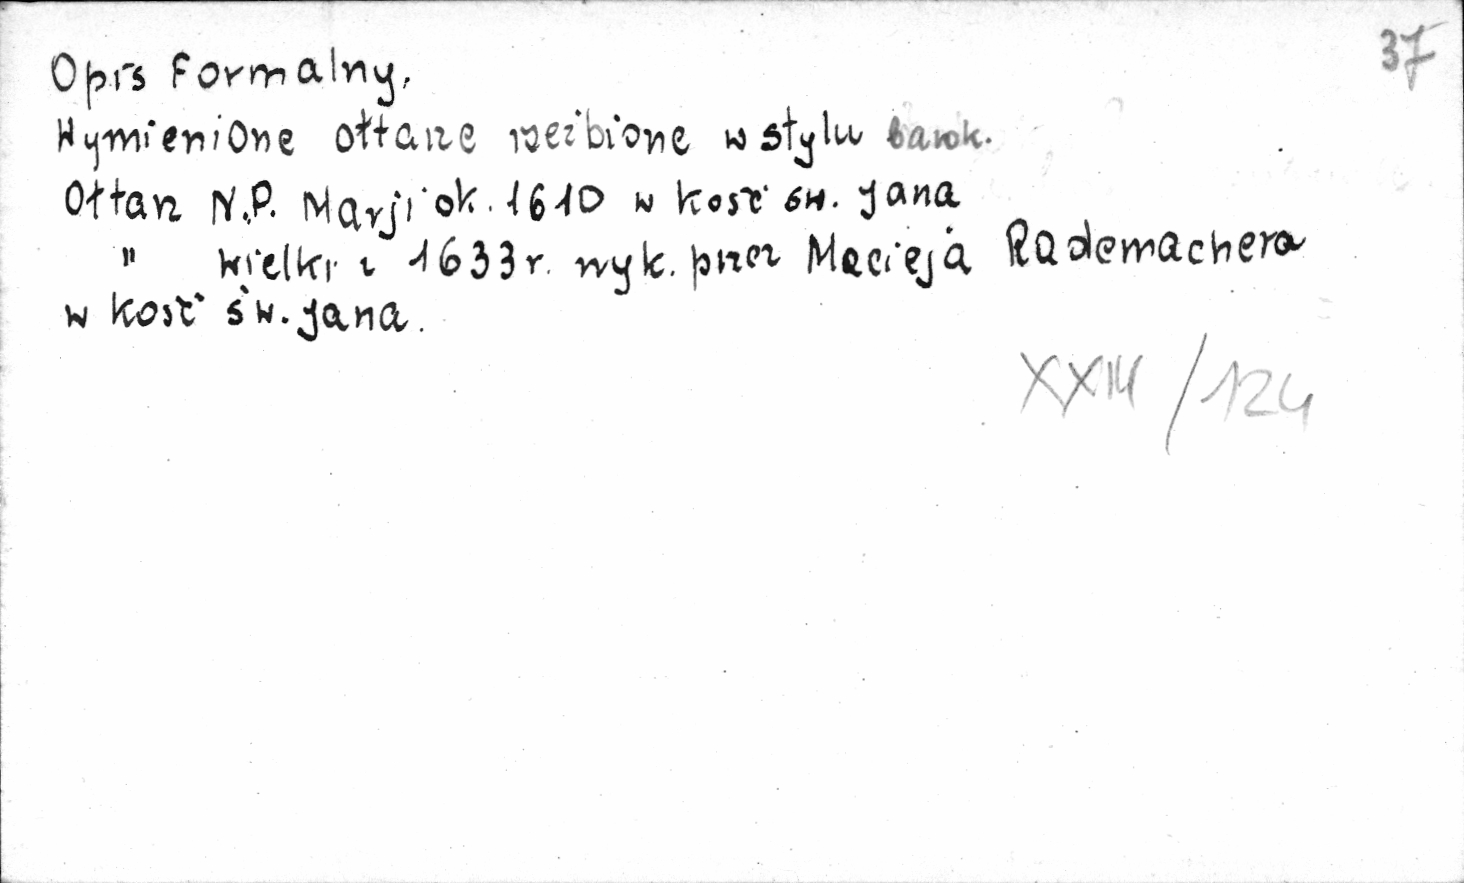 37
Opis Formalny.
Wymienione ołtarze rzeźbione w stylu barok.
Ołtarz N.P. Marji ok. 1610 w kość św. Jana
" Wielki z 1633 r. wyk. przez Macieja Rademachera
w kość św. Jana.
XXIII / 124